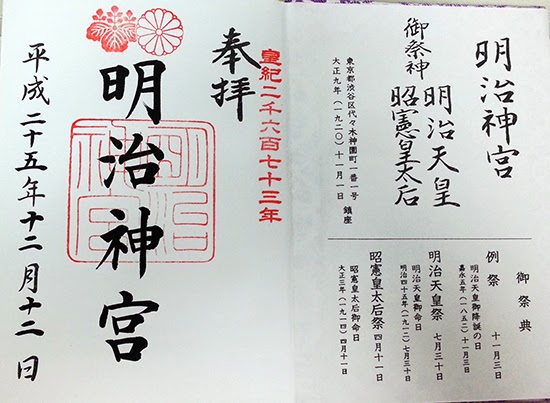 明治神宮
御祭神
明治天皇
昭憲皇太后
東京都渋谷区代々木神園町一番一号
大正九年(一九二〇)十一月一日 鎮座
御祭典
例祭 十一月三日
明治天皇御降誕の日
嘉永五年(一八五二)十一月三日
明治天皇祭 七月三十日
明治天皇御命日
明治四十五年(一九一二)七月三十日
昭憲皇太后祭 四月十一日
昭憲皇太后御命日
大正三年(一九一四)四月十一日
皇紀二千六百七十三年
奉拝
明治神宮
明治神宮
平成二十五年十二月十二日